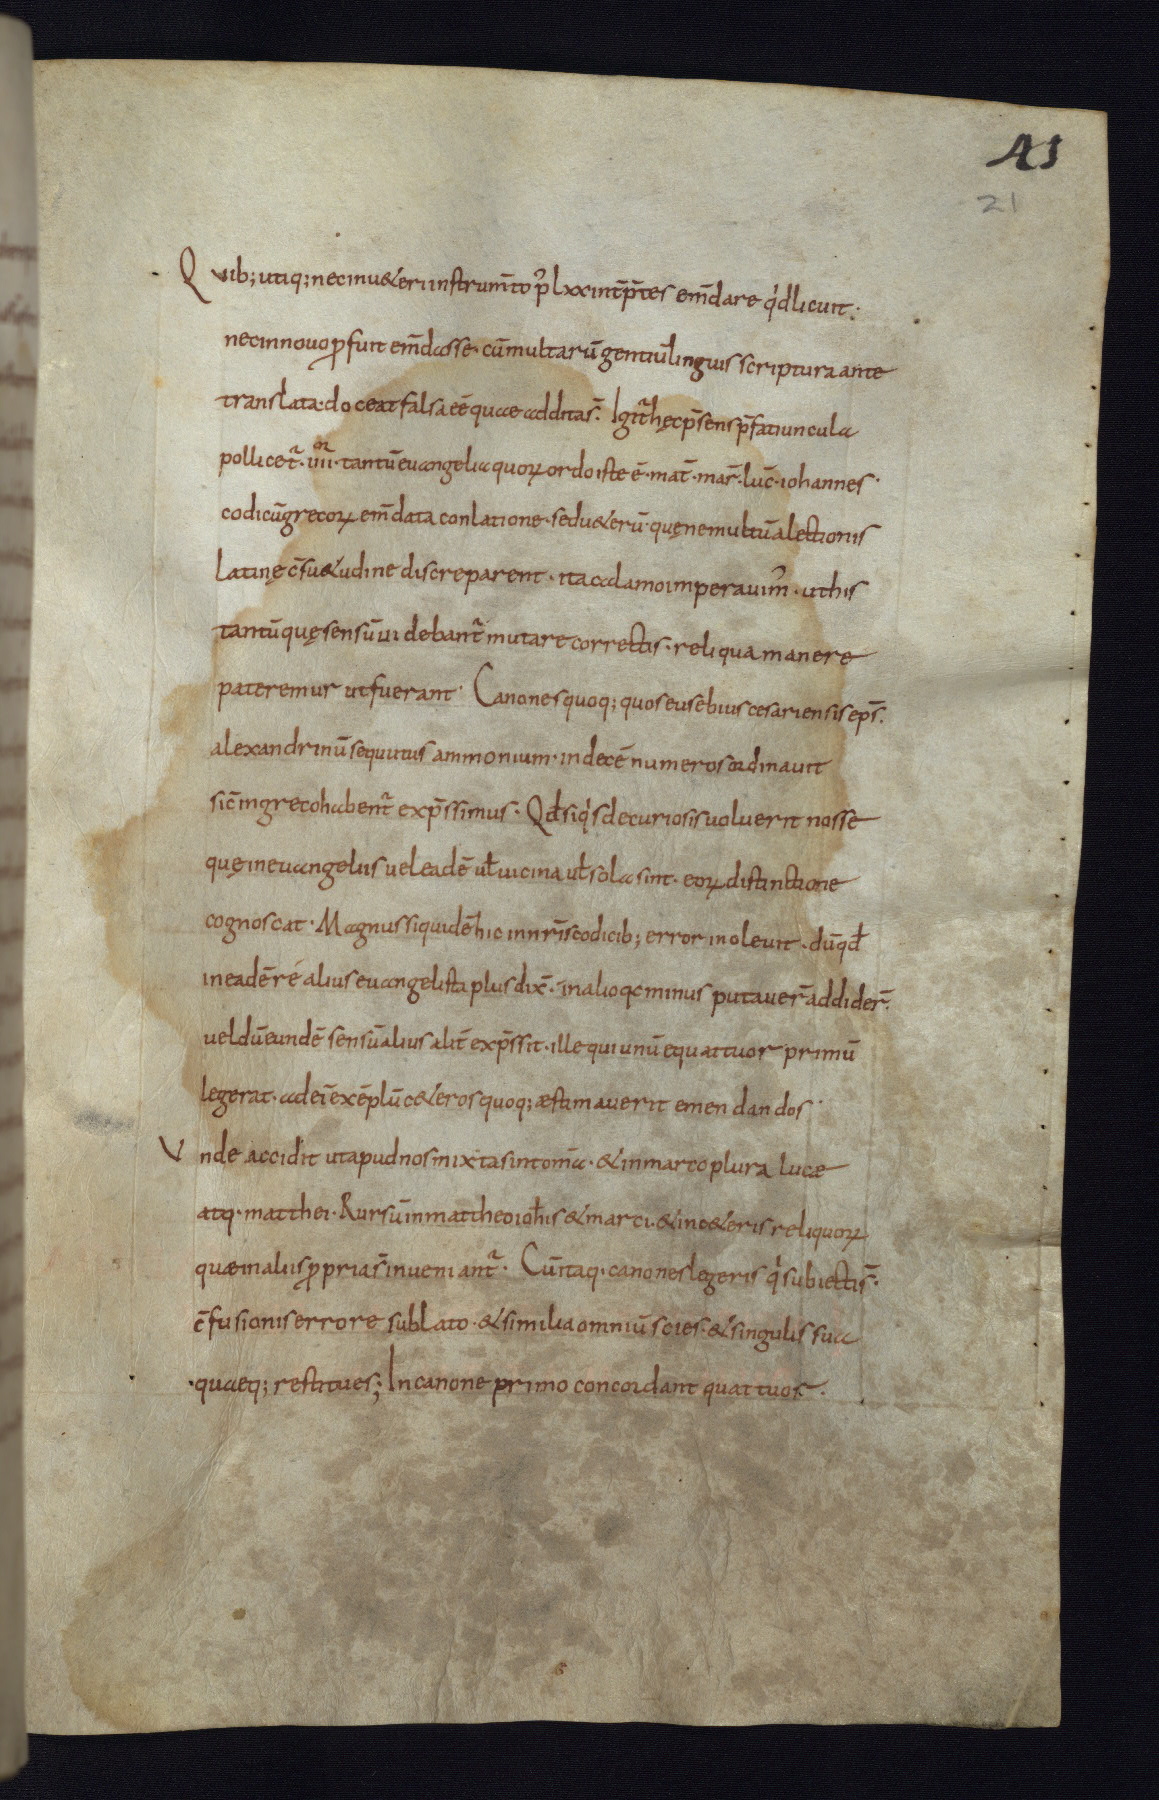 A1
21
Quib; utiq; nec in u&eri instrum̄to p᷒ lxx int̄p̄tes em̄dare qͥd licuit·
nec in novo ꝓfuit em̄dasse· cū multarū gentiū linguis scriptura ante
translata· doceat falsa eē quae addita s̄· Igit᷑ hęc p̄sens p̄fatiuncula
pollicet᷑· iiiior· tantū evangelia quoꝝ ordo iste ē· mat̄· mar̄· luc̄· iohannes·
codicū grecoꝝ em̄data conlatione· sed u&erū· quę ne multū a lectionis
latinę c̄su&udine discreparent· ita calamo imperavim᷒· ut his
tantū quę sensū videbant᷑ mutare correctis· reliqua manere
pateremur ut fuerant· Canones quoq; quos eusebius cesariensis ep̄s·
alexandrinū sequutus ammonium· in decē numeros ordinavit
sic̄ in greco habent᷑ exp̄ssimus· Qđ si qͥs de curiosis voluerit nosse
quę in evangeliis vel eadē uł vicina uł sola sint· eoꝝ distinctione
cognoscat· Magnus siquidē hic in nr̄is codicib; error inolevit· dū qđ
in eadē ré alius evangelista plus dix̄· in alio qa minus putaver̄ addider̄·
vel dū eundē sensū alius alit̄ exp̄ssit· ille qui unū e quattuor primū
legerat· ad ei᷒ exēplū c&eros quoq; aestimaverit emendandos·
Unde accidit ut apud nos mixta sint om̄a· & in marco plura lucae
atq· matthei· Rursū in mattheo ioħis & marci· & in c&eris reliquoꝝ
quae in aliis ꝓpria s̄ inveniant᷑· Cū itaq· canones legeris qͥ subiecti s̄·
c̄fusionis errore sublato· & similia omniū scies· & singulis sua
quaeq; restitues; In canone primo concordant quattuor·